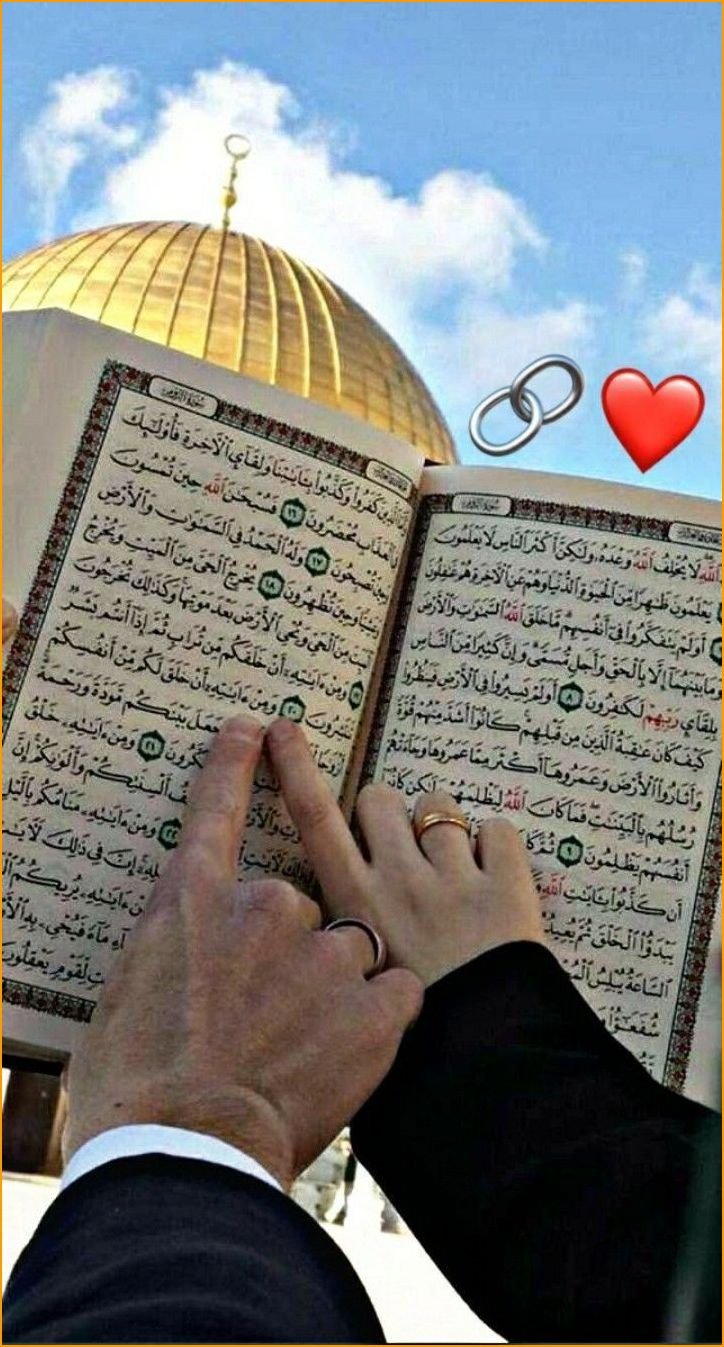 سُورَةُ الرُّومِ
ٱللَّهِ لَا يُخْلِفُ ٱللَّهُ وَعْدَهُۥ وَلَٰكِنَّ أَكْثَرَ ٱلنَّاسِ لَا يَعْلَمُونَ
يَعْلَمُونَ ظَٰهِرًا مِّنَ ٱلْحَيَوٰةِ ٱلدُّنْيَا وَهُمْ عَنِ ٱلْءَاخِرَةِ هُمْ غَٰفِلُونَ
أَوَلَمْ يَتَفَكَّرُوا۟ فِىٓ أَنفُسِهِم مَّا خَلَقَ ٱللَّهُ ٱلسَّمَٰوَٰتِ وَٱلْأَرْضَ
وَمَا بَيْنَهُمَآ إِلَّا بِٱلْحَقِّ وَأَجَلٍ مُّسَمًّى وَإِنَّ كَثِيرًا مِّنَ ٱلنَّاسِ
بِلِقَآئِ رَبِّهِمْ لَكَٰفِرُونَ ٨ أَوَلَمْ يَسِيرُوا۟ فِى ٱلْأَرْضِ فَيَنظُرُوا۟
كَيْفَ كَانَ عَٰقِبَةُ ٱلَّذِينَ مِن قَبْلِهِمْ كَانُوٓا۟ أَشَدَّ مِنْهُمْ قُوَّةً
وَأَثَارُوا۟ ٱلْأَرْضَ وَعَمَرُوهَآ أَكْثَرَ مِمَّا عَمَرُوهَا وَجَآءَتْهُمْ
رُسُلُهُم بِٱلْبَيِّنَٰتِ فَمَا كَانَ ٱللَّهُ لِيَظْلِمَهُمْ وَلَٰكِن كَانُوٓا۟
أَنفُسَهُمْ يَظْلِمُونَ ٩ ثُمَّ كَانَ
أَن كَذَّبُوا۟ بِـَٔايَٰتِ ٱللَّهِ
يَبْدَؤُا۟ ٱلْخَلْقَ ثُمَّ يُعِيدُهُۥ
ٱلسَّاعَةُ يُبْلِسُ
شُفَعَٰٓؤُا۟
سُورَةُ الرُّومِ
ٱلَّذِينَ كَفَرُوا۟ وَكَذَّبُوا۟ بِـَٔايَٰتِنَا وَلِقَآئِ ٱلْءَاخِرَةِ فَأُو۟لَٰٓئِكَ
ٱلْعَذَابِ مُحْضَرُونَ ١٦ فَسُبْحَٰنَ ٱللَّهِ حِينَ تُمْسُونَ
وَحِينَ تُصْبِحُونَ ١٧ وَلَهُ ٱلْحَمْدُ فِى ٱلسَّمَٰوَٰتِ وَٱلْأَرْضِ
وَعَشِيًّا وَحِينَ تُظْهِرُونَ ١٨ يُخْرِجُ ٱلْحَىَّ مِنَ ٱلْمَيِّتِ وَيُخْرِجُ
ٱلْمَيِّتَ مِنَ ٱلْحَىِّ وَيُحْىِ ٱلْأَرْضَ بَعْدَ مَوْتِهَا وَكَذَٰلِكَ تُخْرَجُونَ
١٩ وَمِنْ ءَايَٰتِهِۦٓ أَنْ خَلَقَكُم مِّن تُرَابٍ ثُمَّ إِذَآ أَنتُم بَشَرٌ
تَنتَشِرُونَ ٢٠ وَمِنْ ءَايَٰتِهِۦٓ أَنْ خَلَقَ لَكُم مِّنْ أَنفُسِكُمْ
أَزْوَٰجًا وَجَعَلَ بَيْنَكُم مَّوَدَّةً وَرَحْمَةً
يَتَفَكَّرُونَ ٢١ وَمِنْ ءَايَٰتِهِۦ خَلْقُ
أَلْسِنَتِكُمْ وَأَلْوَٰنِكُمْ إِنَّ
٢٢ وَمِنْ ءَايَٰتِهِۦ مَنَامُكُم بِٱلَّيْلِ
إِنَّ فِى ذَٰلِكَ لَءَايَٰتٍ
ءَايَٰتِهِۦ يُرِيكُمُ
مَآءً فَيُحْىِۦ بِهِ ٱلْأَرْضَ
لِّقَوْمٍ يَعْقِلُونَ